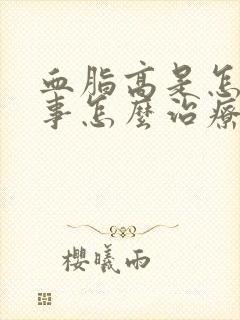 血脂高是怎
事怎麼治療
櫻曦雨